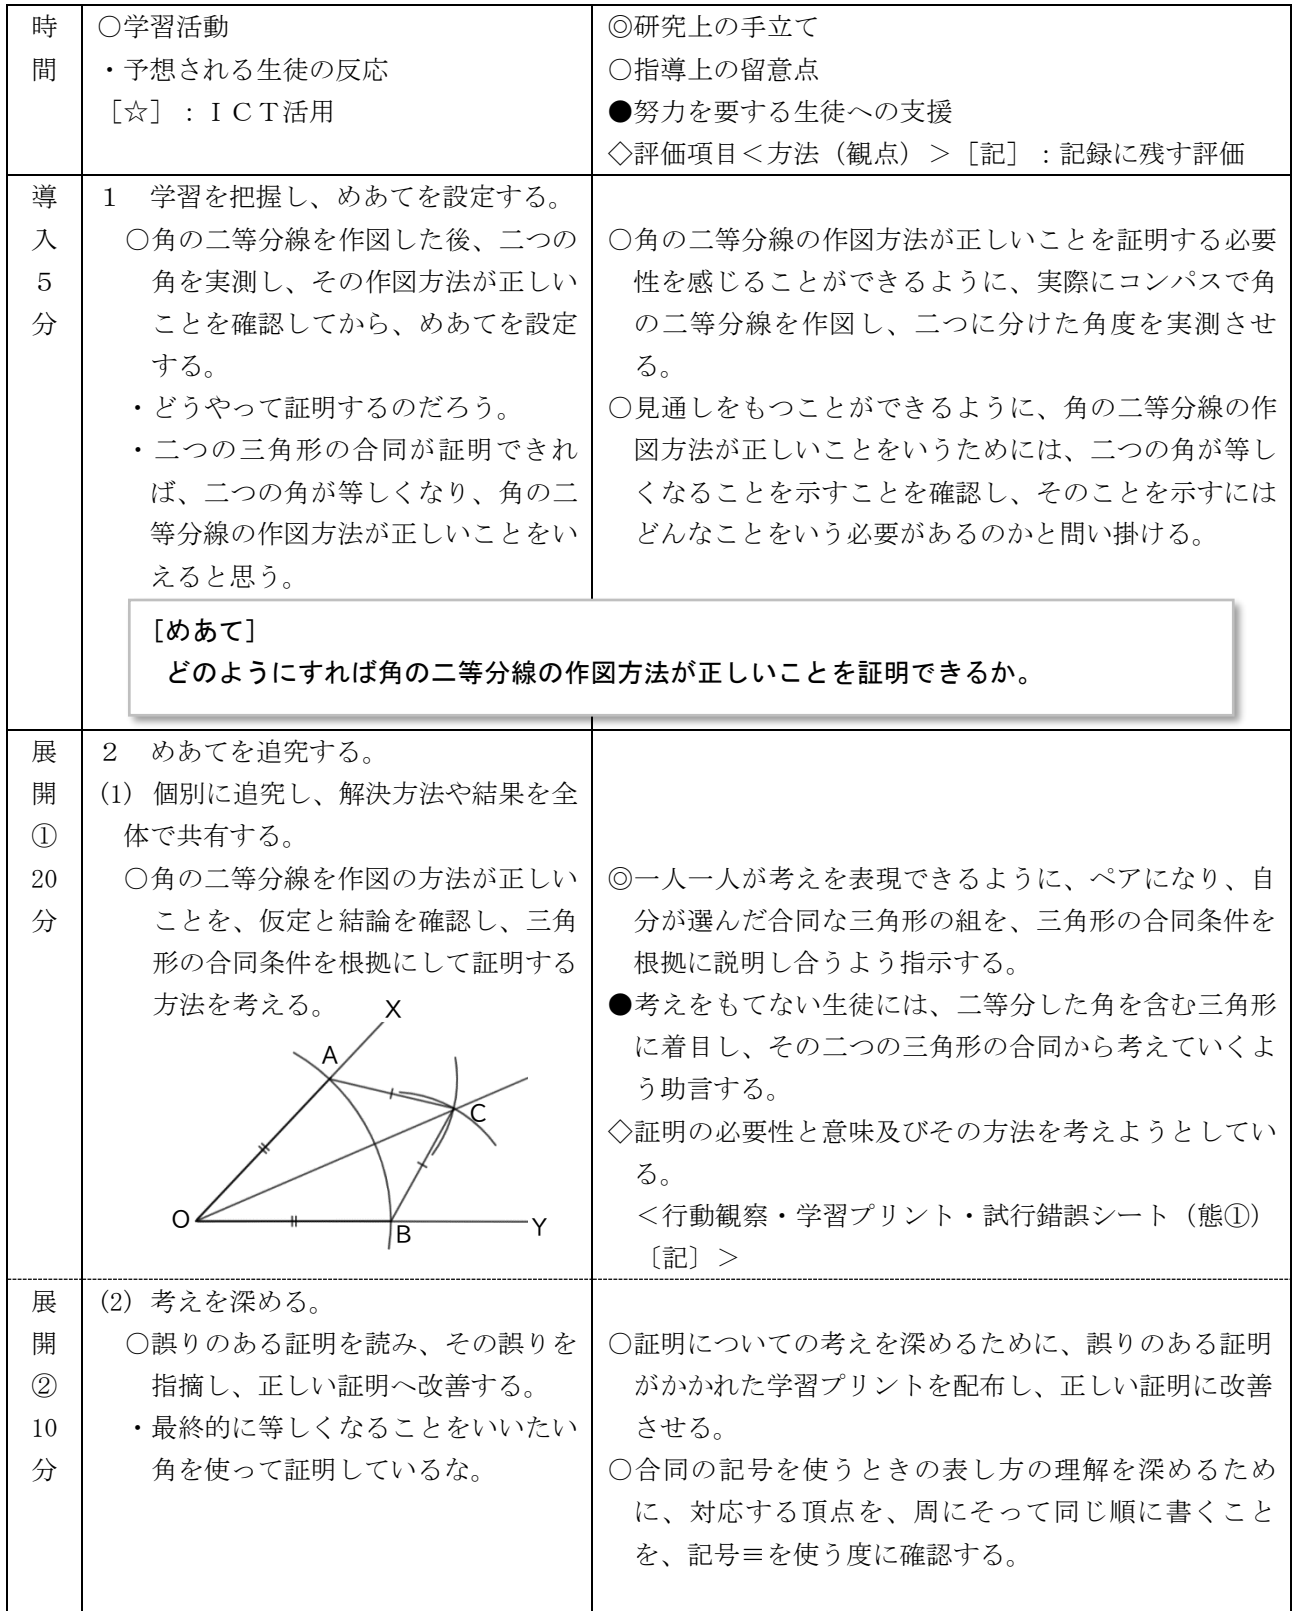 時
間
○学習活動
・予想される生徒の反応
［☆］：ＩＣＴ活用
◎研究上の手立て
○指導上の留意点
●努力を要する生徒への支援
◇評価項目＜方法（観点）＞［記］：記録に残す評価
導
入
５
分
１　学習を把握し、めあてを設定する。
○角の二等分線を作図した後、二つの
角を実測し、その作図方法が正しい
ことを確認してから、めあてを設定
する。
・どうやって証明するのだろう。
・二つの三角形の合同が証明できれ
ば、二つの角が等しくなり、角の二
等分線の作図方法が正しいことをい
えると思う。
○角の二等分線の作図方法が正しいことを証明する必要
性を感じることができるように、実際にコンパスで角
の二等分線を作図し、二つに分けた角度を実測させ
る。
○見通しをもつことができるように、角の二等分線の作
図方法が正しいことをいうためには、二つの角が等し
くなることを示すことを確認し、そのことを示すには
どんなことをいう必要があるのかと問い掛ける。
［めあて］
どのようにすれば角の二等分線の作図方法が正しいことを証明できるか。
展
開
①
20
分
２　めあてを追究する。
(1) 個別に追究し、解決方法や結果を全
体で共有する。
○角の二等分線を作図の方法が正しい
ことを、仮定と結論を確認し、三角
形の合同条件を根拠にして証明する
方法を考える。
X
A
C
O
B
Y
◎一人一人が考えを表現できるように、ペアになり、自
分が選んだ合同な三角形の組を、三角形の合同条件を
根拠に説明し合うよう指示する。
●考えをもてない生徒には、二等分した角を含む三角形
に着目し、その二つの三角形の合同から考えていくよ
う助言する。
◇証明の必要性と意味及びその方法を考えようとしてい
る。
＜行動観察・学習プリント・試行錯誤シート（態①）
〔記〕＞
展
開
②
10
分
(2) 考えを深める。
○誤りのある証明を読み、その誤りを
指摘し、正しい証明へ改善する。
・最終的に等しくなることをいいたい
角を使って証明しているな。
○証明についての考えを深めるために、誤りのある証明
がかかれた学習プリントを配布し、正しい証明に改善
させる。
○合同の記号を使うときの表し方の理解を深めるため
に、対応する頂点を、周にそって同じ順に書くこと
を、記号≡を使う度に確認する。